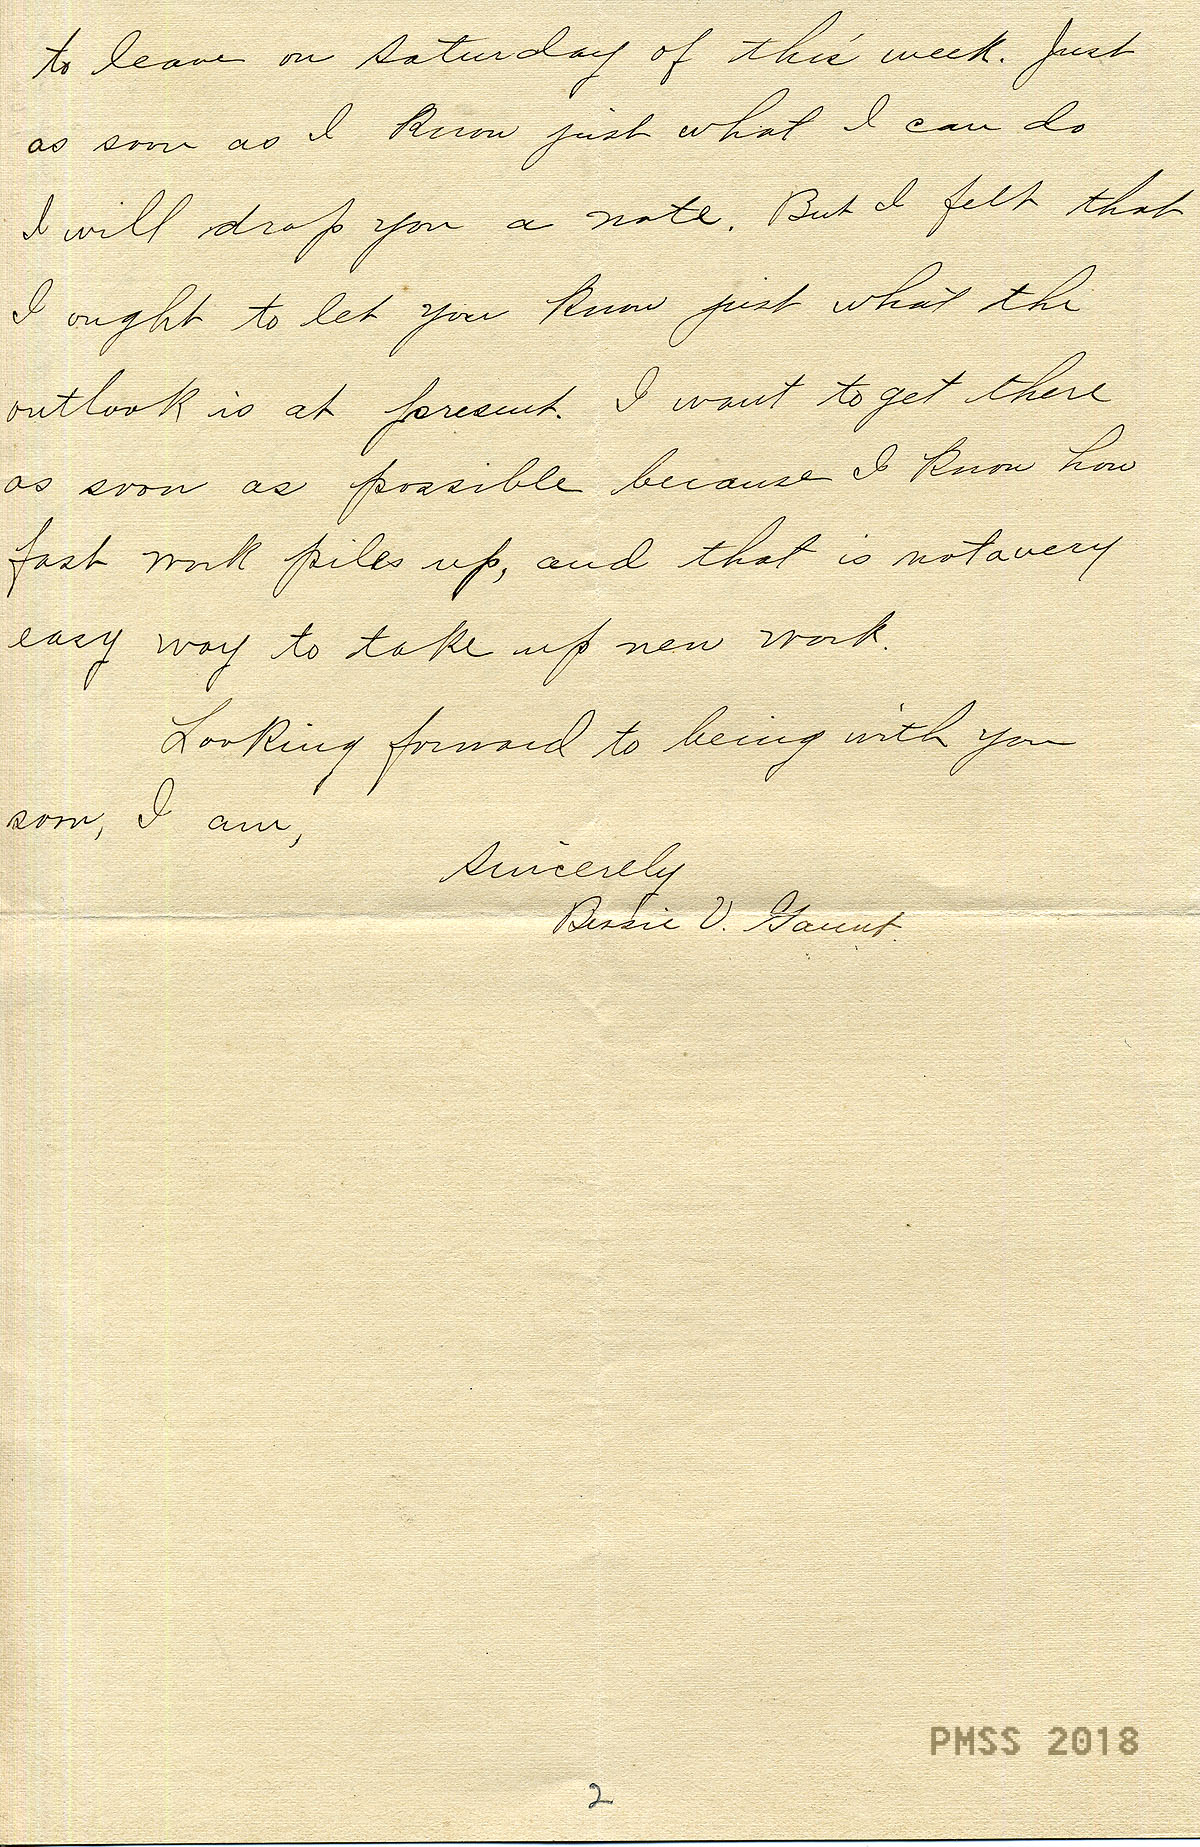 to leave on Saturday of this week. Just
as soon as I know just what I can do
I will drop you a note. But I felt that
I ought to let you know just what the
outlook is at present. I want to get there
as soon as possible because I know how
fast work piles up, and that is not a very
easy way to take up new work.
Looking forward to being with you
soon, I am,
Sincerely
Bessie V. Gaunt.
PMSS 2018
2